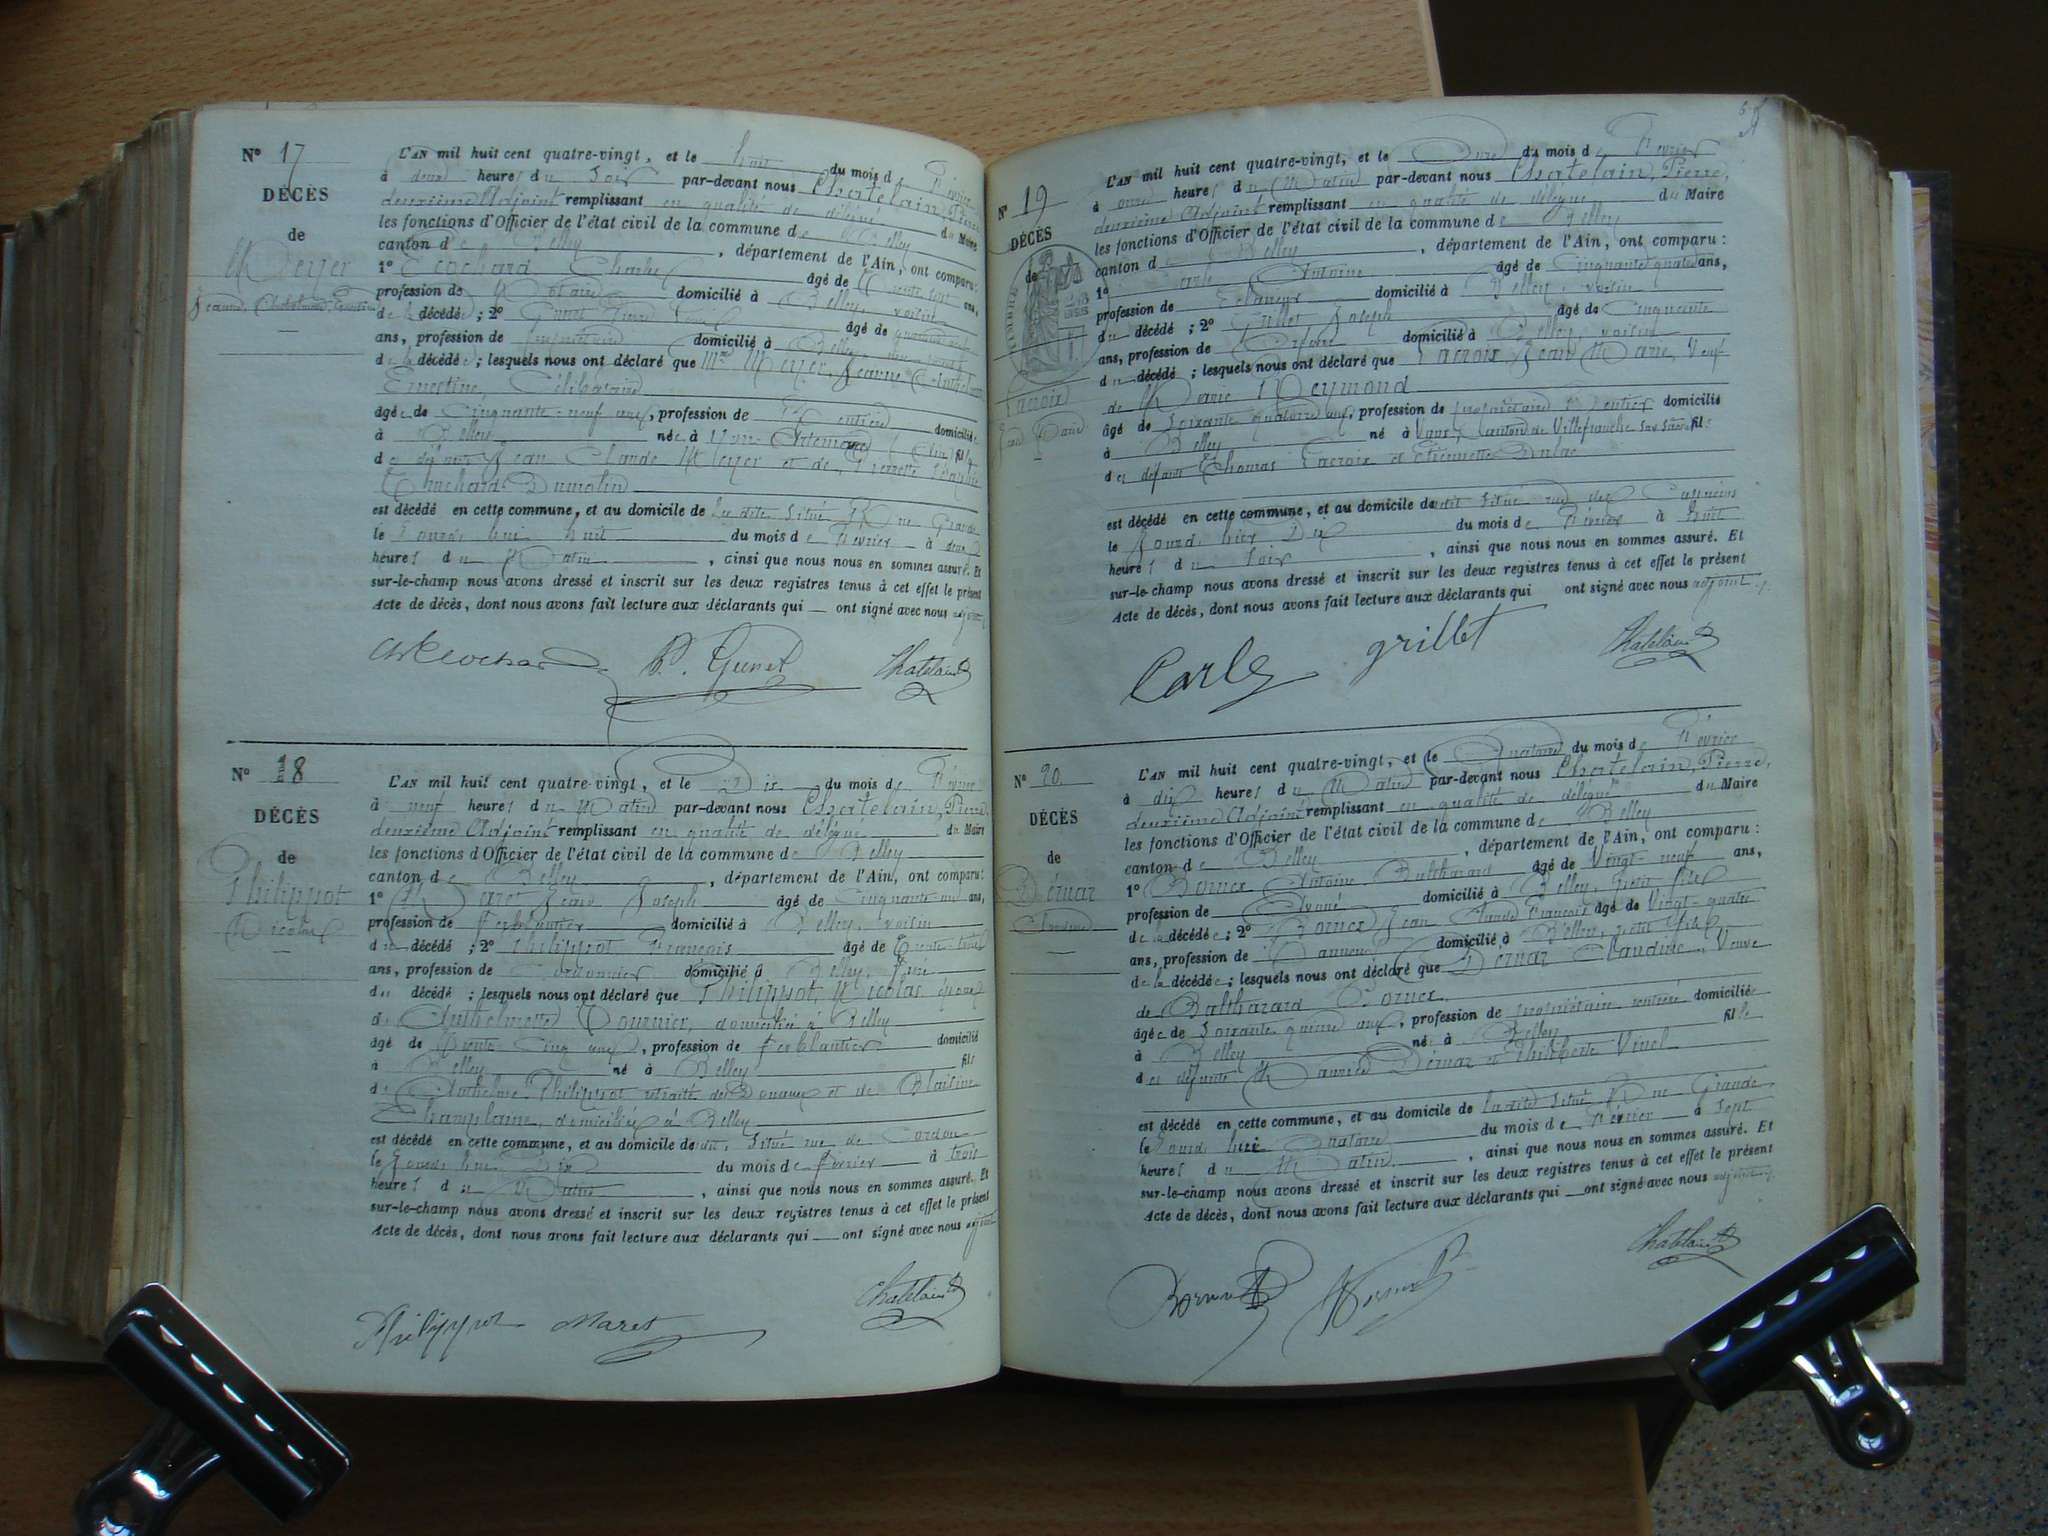 N° 17
DÉCÈS
de
Meyer
L'AN mil huit cent quatre-vingt, et le huit du mois de Février
à deux heures du Soir par-devant nous Chatelain, Pierre
deuxième Adjoint remplissant en qualité de délégué du Maire
les fonctions d'Officier de l'état civil de la commune de Belley
canton de Belley, département de l'Ain, ont comparu:
1° Ecochard Charles âgé de Trente sept ans,
profession de Notaire domicilié à Belley, voisin
de la décédée; 2° Gunet Pierre Louis âgé de
ans, profession de domicilié à Belley
de la décédée; lesquels nous ont déclaré que Meyer, Jeanne
Ernestine, Célibataire
âgée de Cinquante-neuf ans, profession de Rentière domiciliée
à Belley née à Artemare (Ain) fille
de Jean Claude Meyer et de Pierrette
Dumolin
est décédé en cette commune, et au domicile de ladite situé Rue Grande
le Jourd'hui huit du mois de Février à deux
heures du Matin, ainsi que nous nous en sommes assuré. Et
sur-le-champ nous avons dressé et inscrit sur les deux registres tenus à cet effet le présent
Acte de décès, dont nous avons fait lecture aux déclarants qui ont signé avec nous adjoint
P. Gunet Chatelain
N° 18
DÉCÈS
de
Philippot
Nicolas
L'AN mil huit cent quatre-vingt, et le Dix du mois de Février
à neuf heures du Matin par-devant nous Chatelain, Pierre,
deuxième Adjoint remplissant en qualité de délégué du Maire
les fonctions d'Officier de l'état civil de la commune de Belley
canton de Belley, département de l'Ain, ont comparu:
1° Maret Jean Joseph âgé de Cinquante-un ans,
profession de ferblantier domicilié à Belley, voisin
du décédé; 2° Philippot François âgé de Trente-trois
ans, profession de Cordonnier domicilié à Belley, frère
du décédé; lesquels nous ont déclaré que Philippot, Nicolas époux
d'Anthelmette Tournier, domiciliée à Belley
âgé de trente-cinq ans, profession de ferblantier domicilié
à Belley né à Belley fils
d'Anthelme Philippot retraité des Douanes et de Blaisine
Champlaine, domiciliés à Belley
est décédé en cette commune, et au domicile dudit, situé rue de Cordon
le Jourd'hui Dix du mois de février à trois
heures du Matin, ainsi que nous nous en sommes assuré. Et
sur-le-champ nous avons dressé et inscrit sur les deux registres tenus à cet effet le présent
Acte de décès, dont nous avons fait lecture aux déclarants qui ont signé avec nous adjoint
Philippot Maret Chatelain
N° 19
DÉCÈS
de
Lacroix
L'AN mil huit cent quatre-vingt, et le Onze du mois de Février
à onze heures du Matin par-devant nous Chatelain, Pierre,
deuxième Adjoint remplissant en qualité de délégué du Maire
les fonctions d'Officier de l'état civil de la commune de Belley
canton de Belley, département de l'Ain, ont comparu:
1° Carle Antoine âgé de Cinquante quatre ans,
profession de domicilié à Belley, voisin
du décédé; 2° Grillet Joseph âgé de Cinquante
ans, profession de domicilié à Belley, voisin
du décédé; lesquels nous ont déclaré que Lacroix Jean Marie, Veuf
de Marie Reymond
âgé de Soixante quatorze ans, profession de propriétaire Rentier domicilié
à Belley né à Vaux, Canton de Villefranche sur Saône fils
des défunts Thomas Lacroix et Etiennette Dulac
est décédé en cette commune, et au domicile dudit situé rue des Capucins
le Jourd'hier Dix du mois de Février à huit
heures du Soir, ainsi que nous nous en sommes assuré. Et
sur-le-champ nous avons dressé et inscrit sur les deux registres tenus à cet effet le présent
Acte de décès, dont nous avons fait lecture aux déclarants qui ont signé avec nous adjoint
Carle grillet Chatelain
N° 20
DÉCÈS
de
Démar
Claudine
L'AN mil huit cent quatre-vingt, et le Quatorze du mois de Février
à dix heures du Matin par-devant nous Chatelain, Pierre,
deuxième Adjoint remplissant en qualité de délégué du Maire
les fonctions d'Officier de l'état civil de la commune de Belley
canton de Belley, département de l'Ain, ont comparu:
1° Antoine Balthazard âgé de Vingt-neuf ans,
profession de domicilié à Belley, petit fils
de la décédée; 2° Jean Claude François âgé de Vingt-quatre
ans, profession de domicilié à Belley, petit fils
de la décédée; lesquels nous ont déclaré que Démar Claudine, Veuve
de Balthazard
âgée de Soixante quinze ans, profession de propriétaire rentière domiciliée
à Belley née à Belley fille
des défunts Démar et Philiberte Vinel
est décédé en cette commune, et au domicile de ladite situé Rue Grande
le Jourd'hui Quatorze du mois de Février à Sept
heures du Matin, ainsi que nous nous en sommes assuré. Et
sur-le-champ nous avons dressé et inscrit sur les deux registres tenus à cet effet le présent
Acte de décès, dont nous avons fait lecture aux déclarants qui ont signé avec nous adjoint
Chatelain